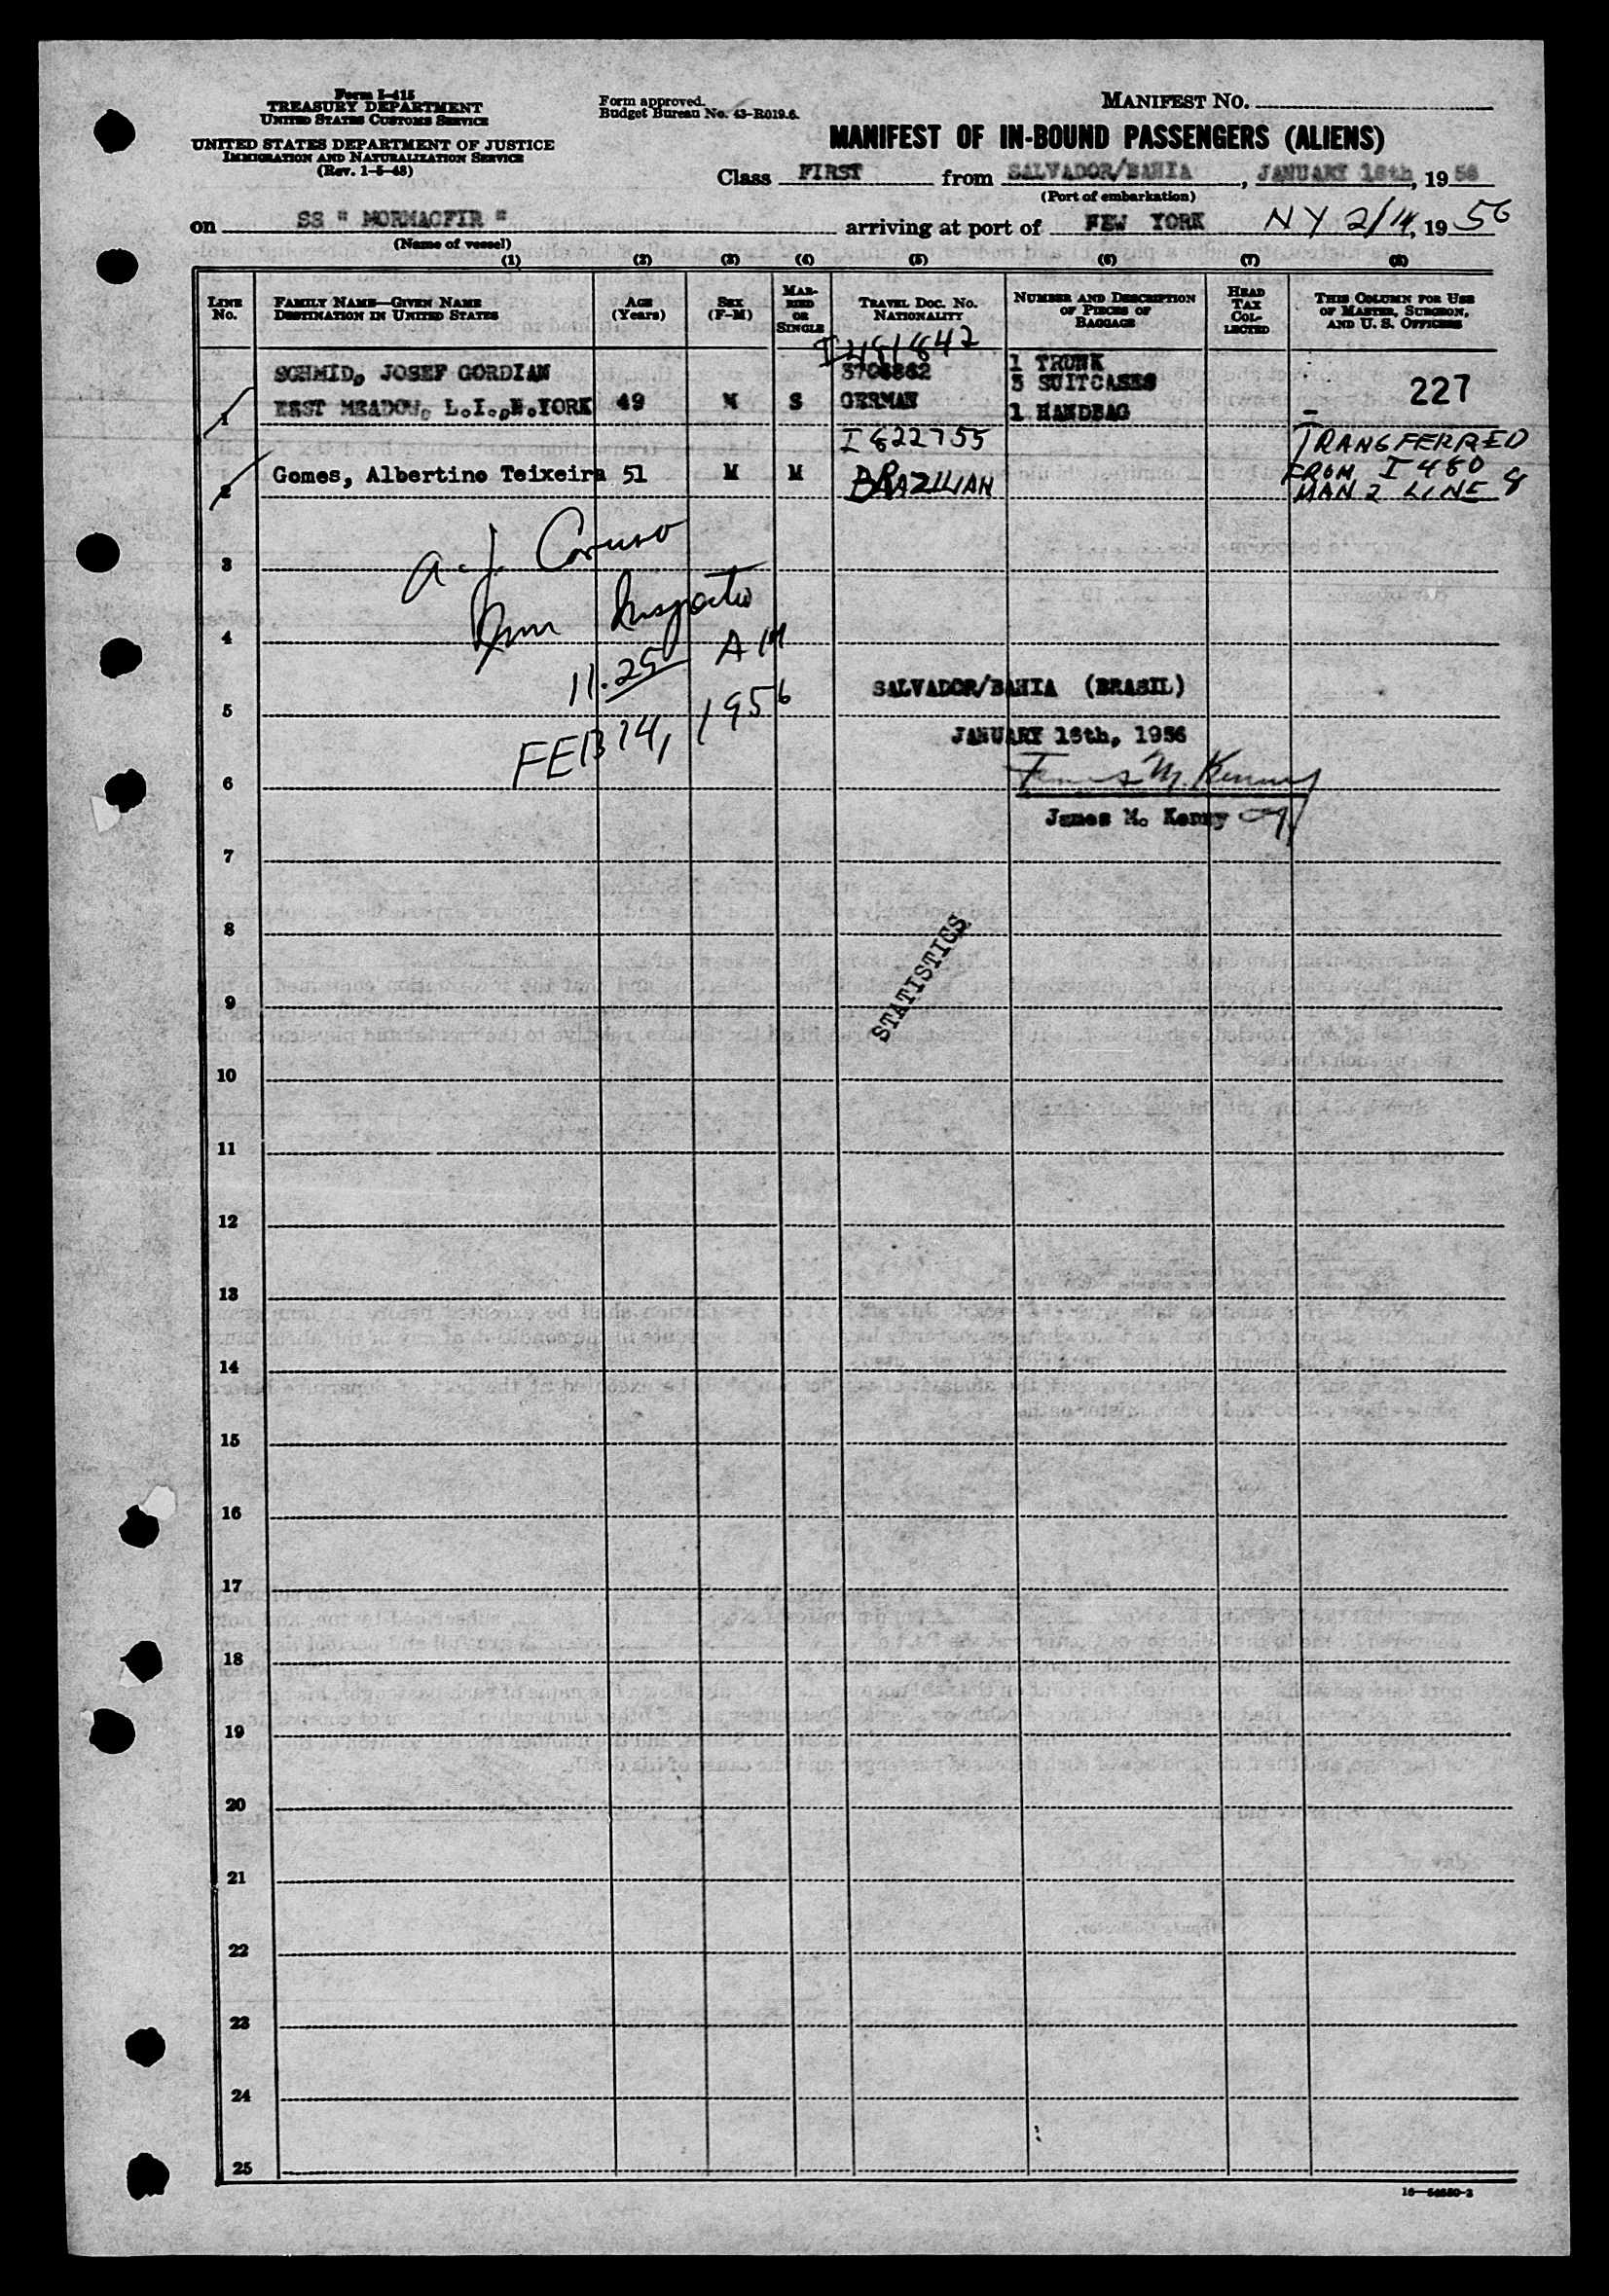 Form I-415
TREASURY DEPARTMENT
UNITED STATES CUSTOMS SERVICE
UNITED STATES DEPARTMENT OF JUSTICE
IMMIGRATION AND NATURALIZATION SERVICE
(Rev. 1-5-48)
Form approved.
Budget Bureau No. 43-R019.6.
MANIFEST NO.
MANIFEST OF IN-BOUND PASSENGERS (ALIENS)
Class FIRST from SALVADOR/BAHIA, JANUARY 16th, 1956
(Port of embarkation)
on SS " MORMACFIR " arriving at port of NEW YORK NY 2/14, 1956
(Name of vessel)
(1) (2) (3) (4) (5) (6) (7) (8)
LINE No. FAMILY NAME—GIVEN NAME DESTINATION IN UNITED STATES AGE (Years) SEX (F-M) MARRIED OR SINGLE TRAVEL DOC. No. NATIONALITY NUMBER AND DESCRIPTION OF PIECES OF BAGGAGE HEAD TAX COLLECTED THIS COLUMN FOR USE OF MASTER, SURGEON, AND U. S. OFFICERS
I481842
SCHMID, JOSEF GORDIAN 3706862 1 TRUNK
3 SUITCASES 227
1 EAST MEADOW, L.I.,N.YORK 49 M S GERMAN 1 HANDBAG
I822755 TRANSFERRED
2 Gomes, Albertino Teixeira 51 M M BRAZILIAN FROM I 480
MAN 2 LINE 8
A. J. Caruso
3
Imm Inspector
4
11.25 AM
SALVADOR/BAHIA (BRASIL)
5
FEB 14, 1956
JANUARY 16th, 1956
6
James M. Kenny
James M. Kenny
7
8
STATISTICS
9
10
11
12
13
14
15
16
17
18
19
20
21
22
23
24
25